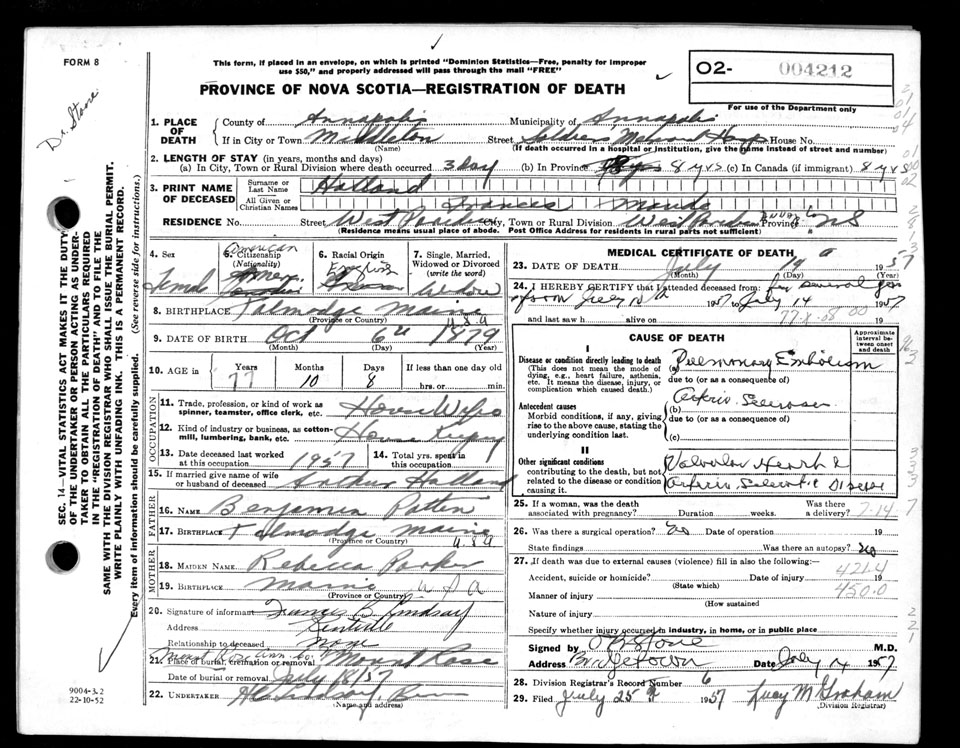 FORM 8
This form, if placed in an envelope, on which is printed "Dominion Statistics—Free, penalty for improper
use $50," and properly addressed will pass through the mail "FREE"
O2- 004212
PROVINCE OF NOVA SCOTIA—REGISTRATION OF DEATH
For use of the Department only
Dr. Stone
1. PLACE OF DEATH
County of Annapolis Municipality of Annapolis
If in City or Town Middleton Street Soldiers Memorial Hosp House No.
(Name) (If death occurred in a hospital or institution, give the name instead of street and number)
2. LENGTH OF STAY (in years, months and days)
(a) In City, Town or Rural Division where death occurred 3 day (b) In Province 8 yrs (c) In Canada (if immigrant) 8 yrs
3. PRINT NAME OF DECEASED
Surname or Last Name Halland
All Given or Christian Names Frances Maude
RESIDENCE No. Street West Paradise City, Town or Rural Division West Paradise Province NS
(Residence means usual place of abode. Post Office Address for residents in rural parts not sufficient)
SEC. 14—VITAL STATISTICS ACT MAKES IT THE DUTY
OF THE UNDERTAKER OR PERSON ACTING AS UNDER-
TAKER TO OBTAIN ALL THE PARTICULARS REQUIRED
IN THE "REGISTRATION OF DEATH" AND TO FILE THE
SAME WITH THE DIVISION REGISTRAR WHO SHALL ISSUE THE BURIAL PERMIT.
WRITE PLAINLY WITH UNFADING INK. THIS IS A PERMANENT RECORD.
Every item of information should be carefully supplied. (See reverse side for instructions.)
4. Sex Female
5. Citizenship (Nationality) American
6. Racial Origin English
7. Single, Married, Widowed or Divorced (write the word) Widow
8. BIRTHPLACE Talmadge Maine USA
(Province or Country)
9. DATE OF BIRTH Oct 6th 1879
(Month) (Day) (Year)
10. AGE in Years 77 Months 10 Days 8 If less than one day
hrs. or min.
OCCUPATION
11. Trade, profession, or kind of work as spinner, teamster, office clerk, etc. House Wife
12. Kind of industry or business, as cotton-mill, lumbering, bank, etc. House Keeping
13. Date deceased last worked at this occupation 1957 14. Total yrs. spent in this occupation
15. If married give name of wife or husband of deceased Arthur Halland
FATHER
16. NAME Benjamin Patten
17. BIRTHPLACE Talmadge Maine USA
(Province or Country)
MOTHER
18. MAIDEN NAME Rebecca Parker
19. BIRTHPLACE Maine USA
(Province or Country)
20. Signature of informant Francis B. Lindsay
Address
Relationship to deceased none
21. Place of burial, cremation or removal Mount Rose
Mount Rose Ann. Co.
Date of burial or removal July 18/57
22. UNDERTAKER
(Name and address)
9004-3.2
22-10-52
MEDICAL CERTIFICATE OF DEATH
23. DATE OF DEATH July 1957
(Month) (Day)
24. I HEREBY CERTIFY that I attended deceased from for several yrs
from July 10th 1957 to July 14 1957
and last saw h alive on 19
CAUSE OF DEATH
Approximate interval between onset and death
I
Disease or condition directly leading to death
(This does not mean the mode of dying, e.g., heart failure, asthenia, etc. It means the disease, injury, or complication which caused death.)
(a) Pulmonary Embolism
due to (or as a consequence of)
Antecedent causes
Morbid conditions, if any, giving rise to the above cause, stating the underlying condition last.
(b) Arterio Sclerosis
due to (or as a consequence of)
(c)
II
Other significant conditions
contributing to the death, but not related to the disease or condition causing it.
Valvular Heart &
Arterio Sclerotic Disease
25. If a woman, was the death associated with pregnancy? Duration weeks. Was there a delivery? 7-14-7
26. Was there a surgical operation? No Date of operation 19
State findings Was there an autopsy? No
27. If death was due to external causes (violence) fill in also the following:
421.4
Accident, suicide or homicide? Date of injury 19
(State which)
450.0
Manner of injury
(How sustained)
Nature of injury
Specify whether injury occurred in industry, in home, or in public place
Signed by Stone M.D.
Address Bridgetown Date July 14 1957
28. Division Registrar's Record Number 6
29. Filed July 25th 1957 Lucy M Graham
(Division Registrar)